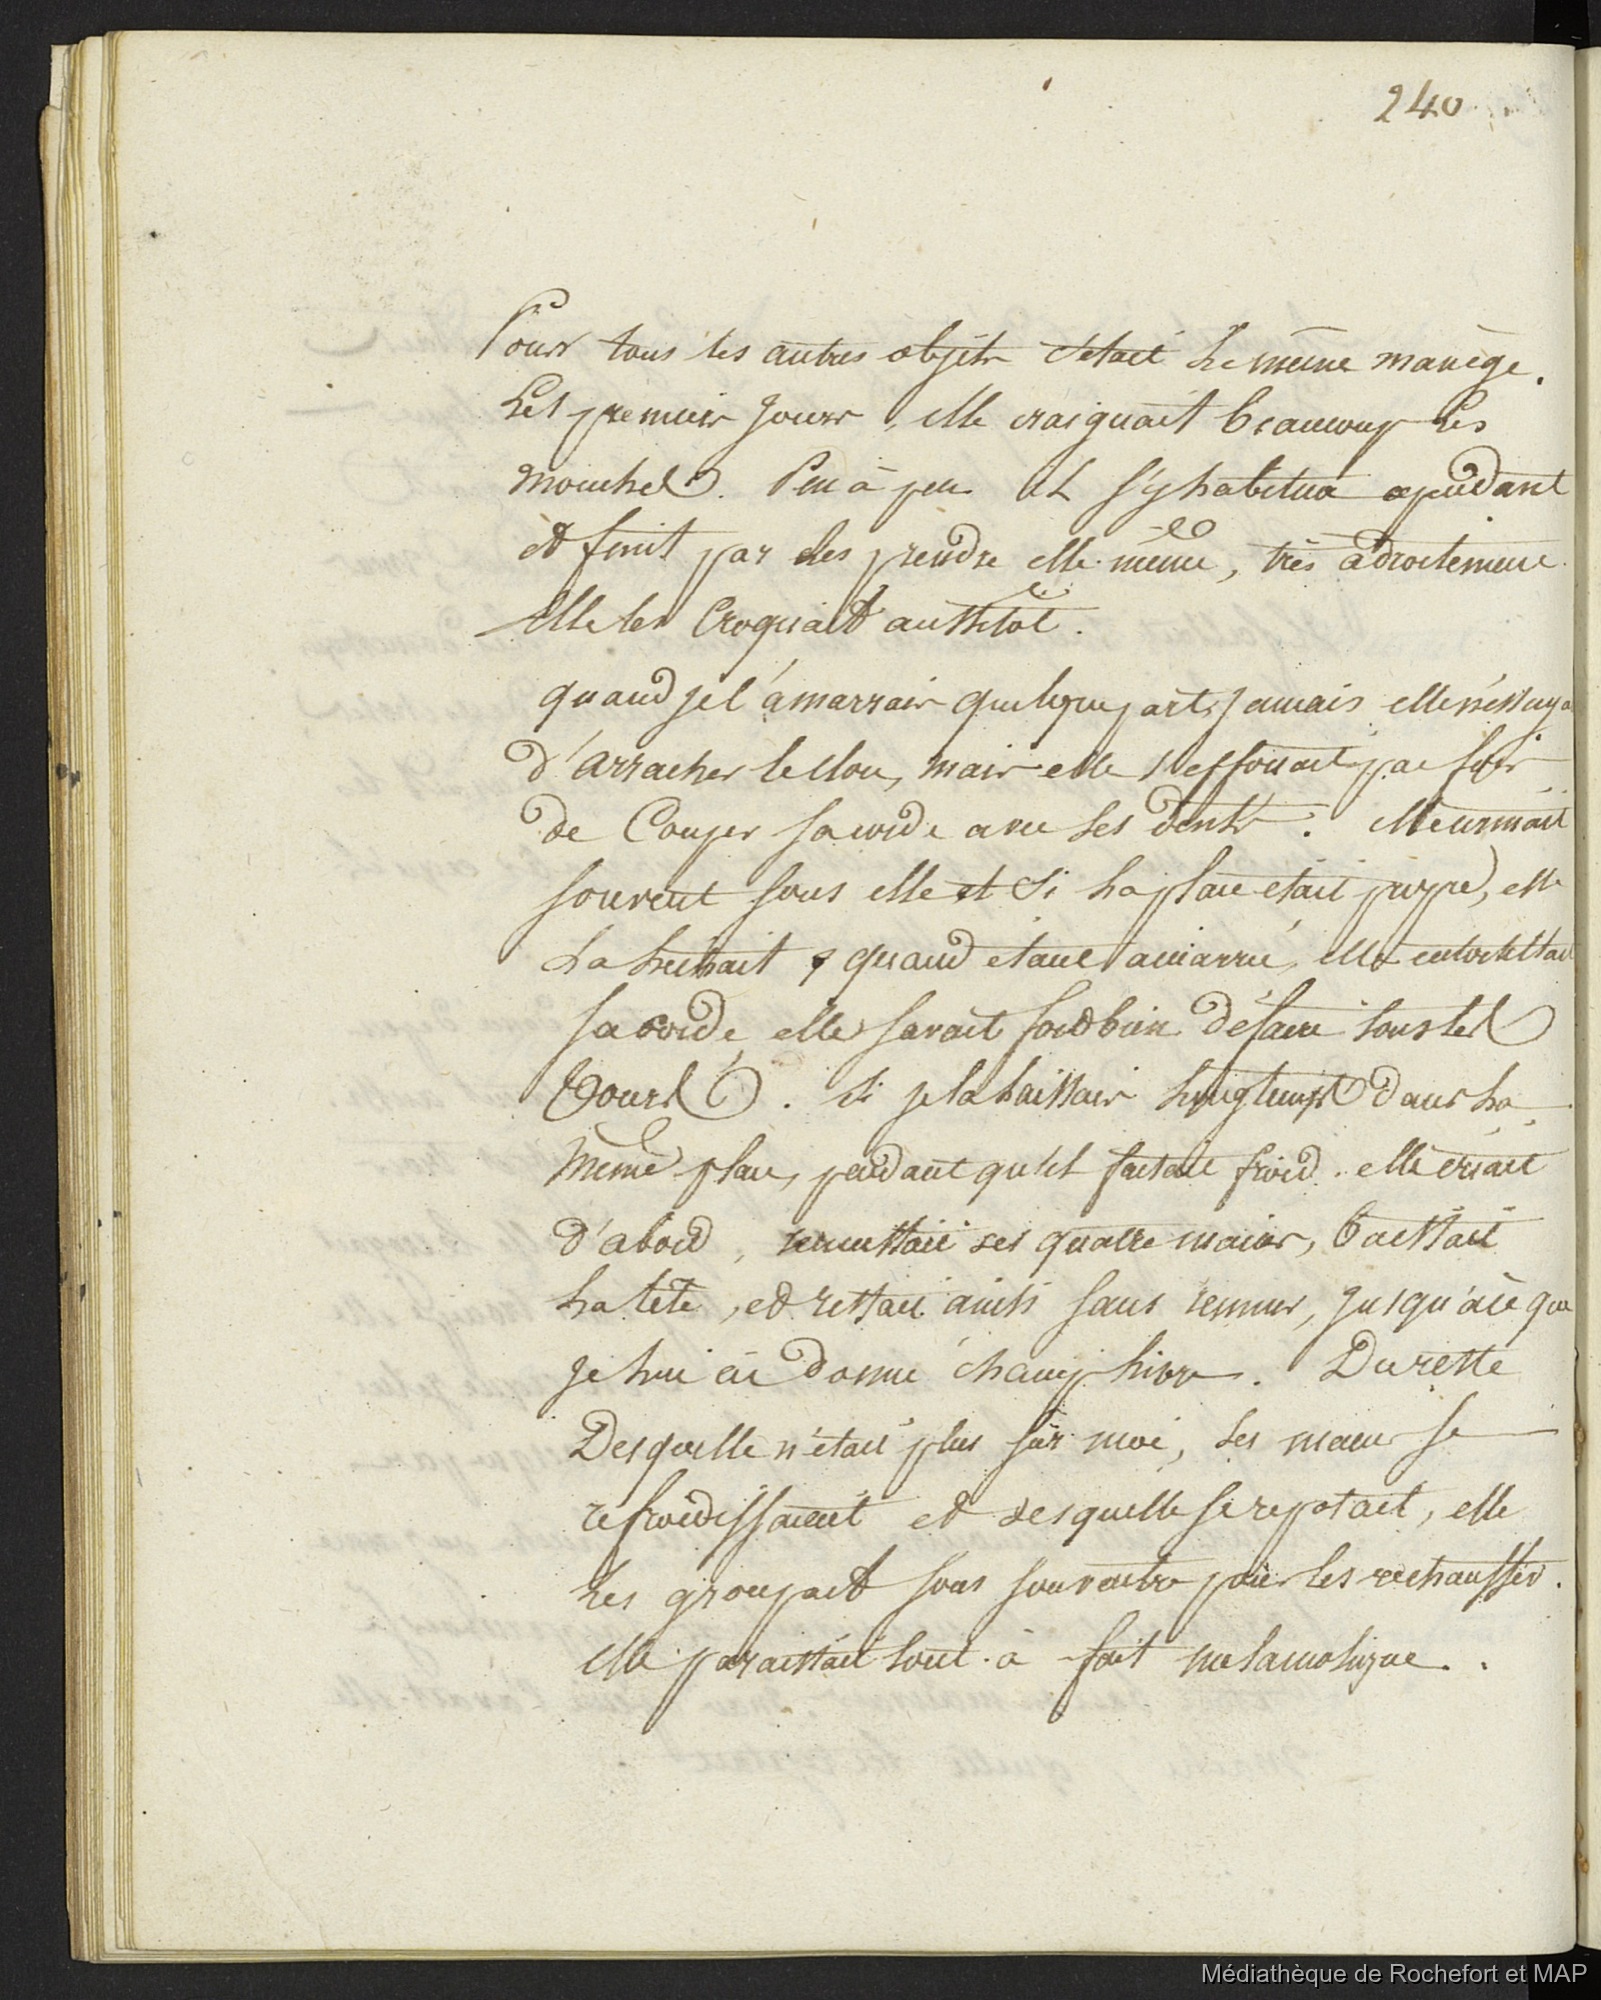 240
Pour tous les autres objets c'était le même manège.
Les premiers jours, elle craignait beaucoup les
mouches. Peu à peu s'y habitua cependant
et finit par les prendre elle même, très adroitement.
Elle les croquait aussitôt.
quand je l'amarrais quelque part, jamais elle n'essaya
d'arracher le clou, mais elle s'efforçait par fois
de couper sa corde avec ses dents. Elle urinait
souvent sous elle et si la place était propre, elle
la léchait, quand étant amarrée, elle entortillait
sa corde, elle savait fort bien défaire tous les
tours. Si je la laissais longtemps dans la
même place, pendant qu'il faisait froid. elle criait
d'abord, ses quatre mains, baissait
la tête, et restait ainsi sans remuer, jusqu'à ce que
je lui ai donné champ libre. Du reste
Desquelle n'était plus sur moi, ses mains se
refroidissaient et desquelle se reposait, elle
les groupait sous son ventre pour les rechauffer.
elle paraissait tout à fait melancolique.
Médiathèque de Rochefort et MAP